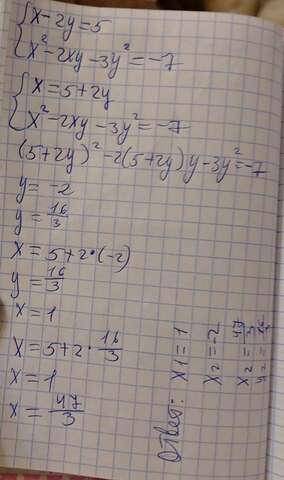 x-2y=5
x²-2xy-3y²=-7
x=5+2y
x²-2xy-3y²=-7
(5+2y)²-2(5+2y)y-3y²=-7
y=-2
y=16/3
x=5+2·(-2)
y=16/3
x=1
x=5+2·16/3
x=1
x=47/3
Ответ: x1=1
x2=-2
x2=47/3
y2=16/3